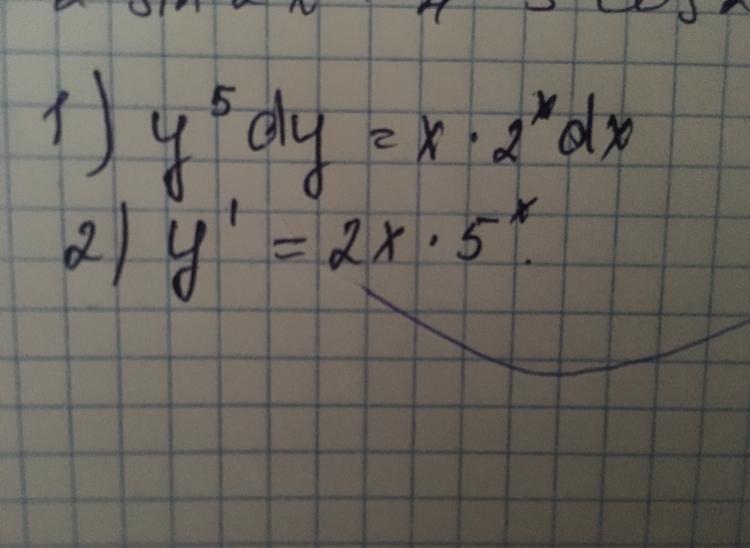 1) y⁵dy = x · 2ˣdx
2) y' = 2x · 5ˣ.